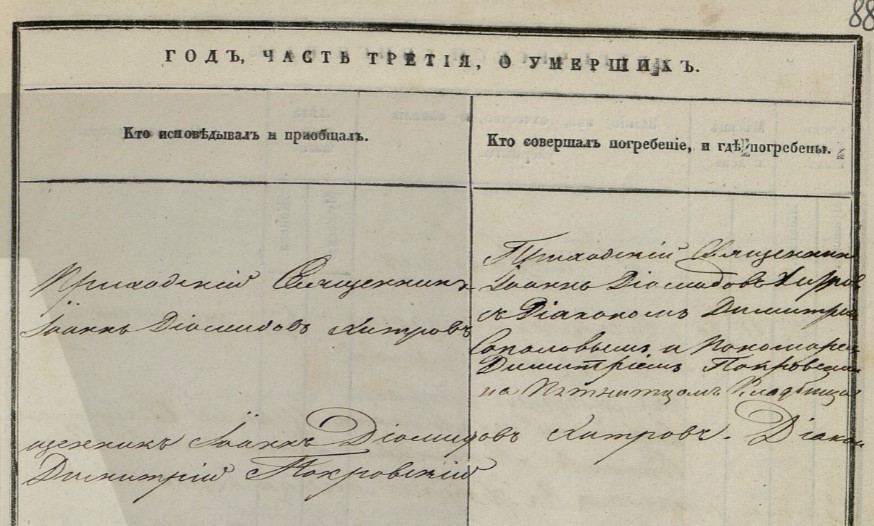 88
ГОДЪ, ЧАСТЬ ТРЕТІЯ, О УМЕРШИХЪ.
Кто исповѣдывалъ и пріобщалъ.
Кто совершалъ погребеніе, и гдѣ погребены.
Приходскій Священникъ
Іоаннъ Діомидовъ Хитровъ
Приходскій Священник
Іоаннъ Діомидовъ Хитров
съ Діакономъ Димитріем
Соколовымъ и Пономарем
Димитріемъ Покровским
на Пятницкомъ Кладбище
щенникъ Іоаннъ Діомидовъ Хитровъ. Діакон
Димитрій Покровскій